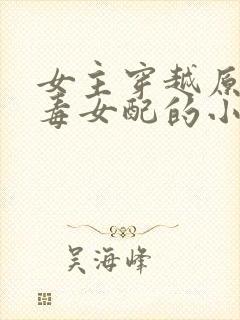 女主穿越原
毒女配的小
吴海峰